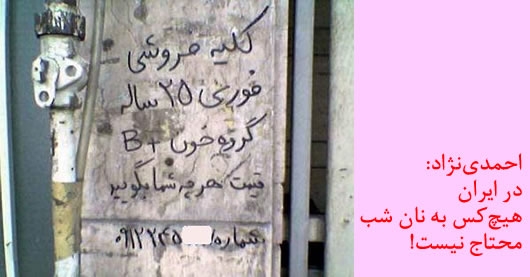 کلیه فروشی
فوری ۲۵ ساله
گروه خون B+
قیمت هر چه شما بگویید
شماره ۰۹۱۲۲۴۵
احمدی‌نژاد:
در ایران
هیچ‌کس به نان شب
محتاج نیست!